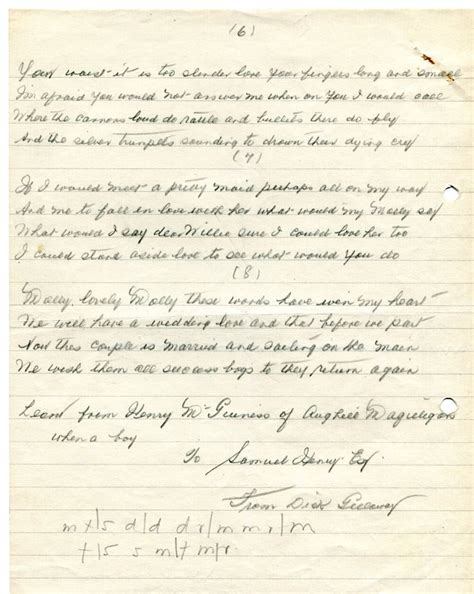 (6)
Your waist it is too slender love your fingers long and small
I'm afraid you would not answer me when on you I would call
Where the cannons loud do rattle and bullets there do fly
And the silver trumpets sounding to drown their dying cry
(7)
If I would meet a pretty maid perhaps all on my way
And me to fall in love with her what would my Molly say
What would I say dear Willie sure I could love her too
I could stand aside love to see what would you do
(8)
Molly lovely Molly these words have won my heart
We will have a wedding love and that before we part
Now this couple is married and sailing on the main
We wish them all success boys to they return again
Learn from Henry McGuiness of
when a boy
To Samuel Henry Esq.
From Dick